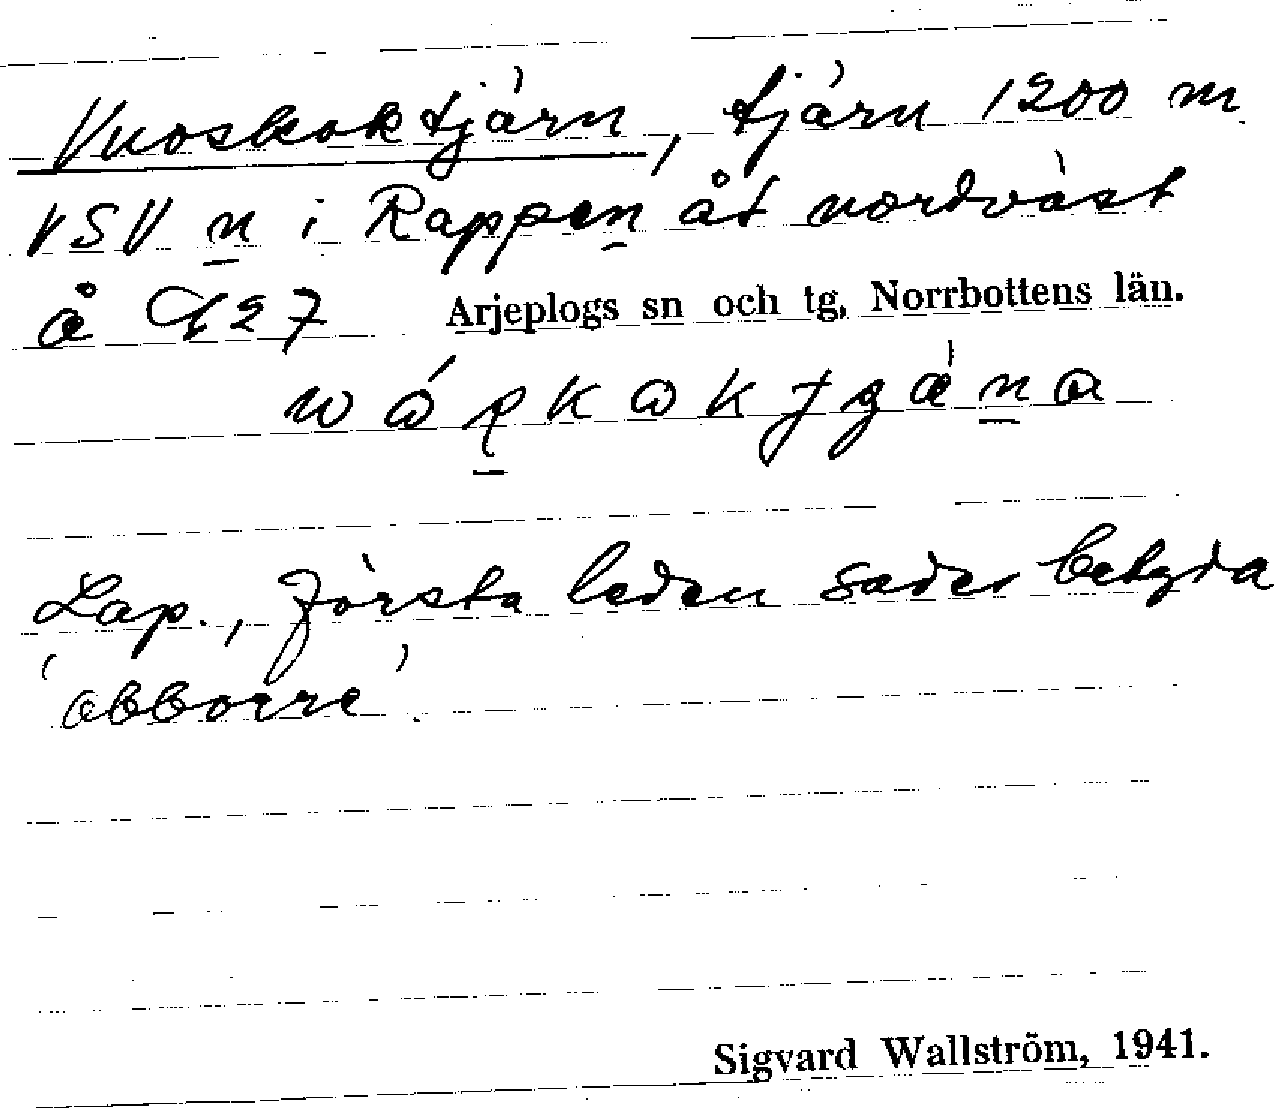 Vuoskoktjärn, tjärn 1200 m
VSV n i Rappen åt nordväst
å 927 Arjeplogs sn och tg, Norrbottens län.
Lap., första leden sades betyda
'abborre'.
Sigvard Wallström, 1941.